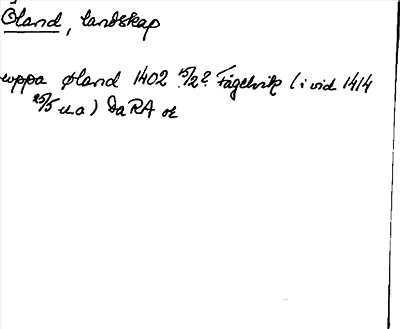 Öland, landskap
uppa Øland 1402 15/2? Fågelvik (i vid 1414
25/5 u a) DaRA or